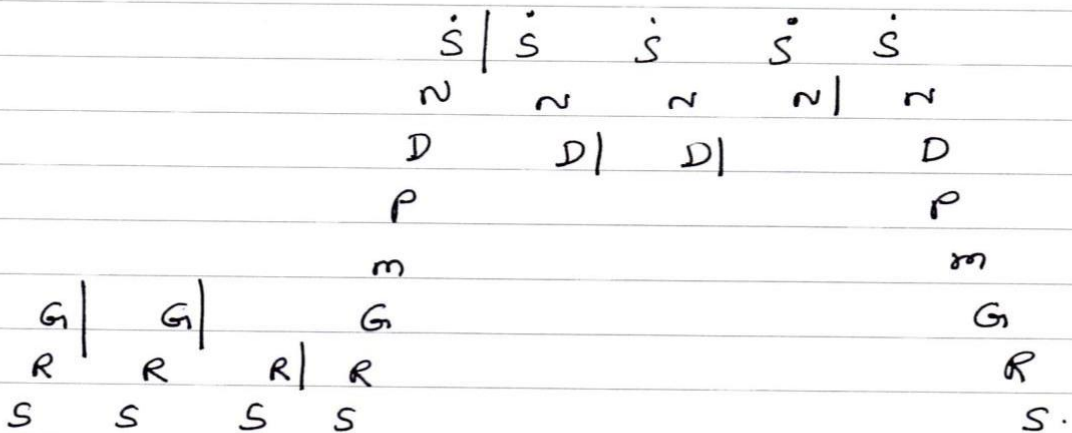 Ṡ | Ṡ Ṡ Ṡ Ṡ
N N N N | N
D D | D | D
P P
m m
G | G | G G
R R R | R R
S S S S S.